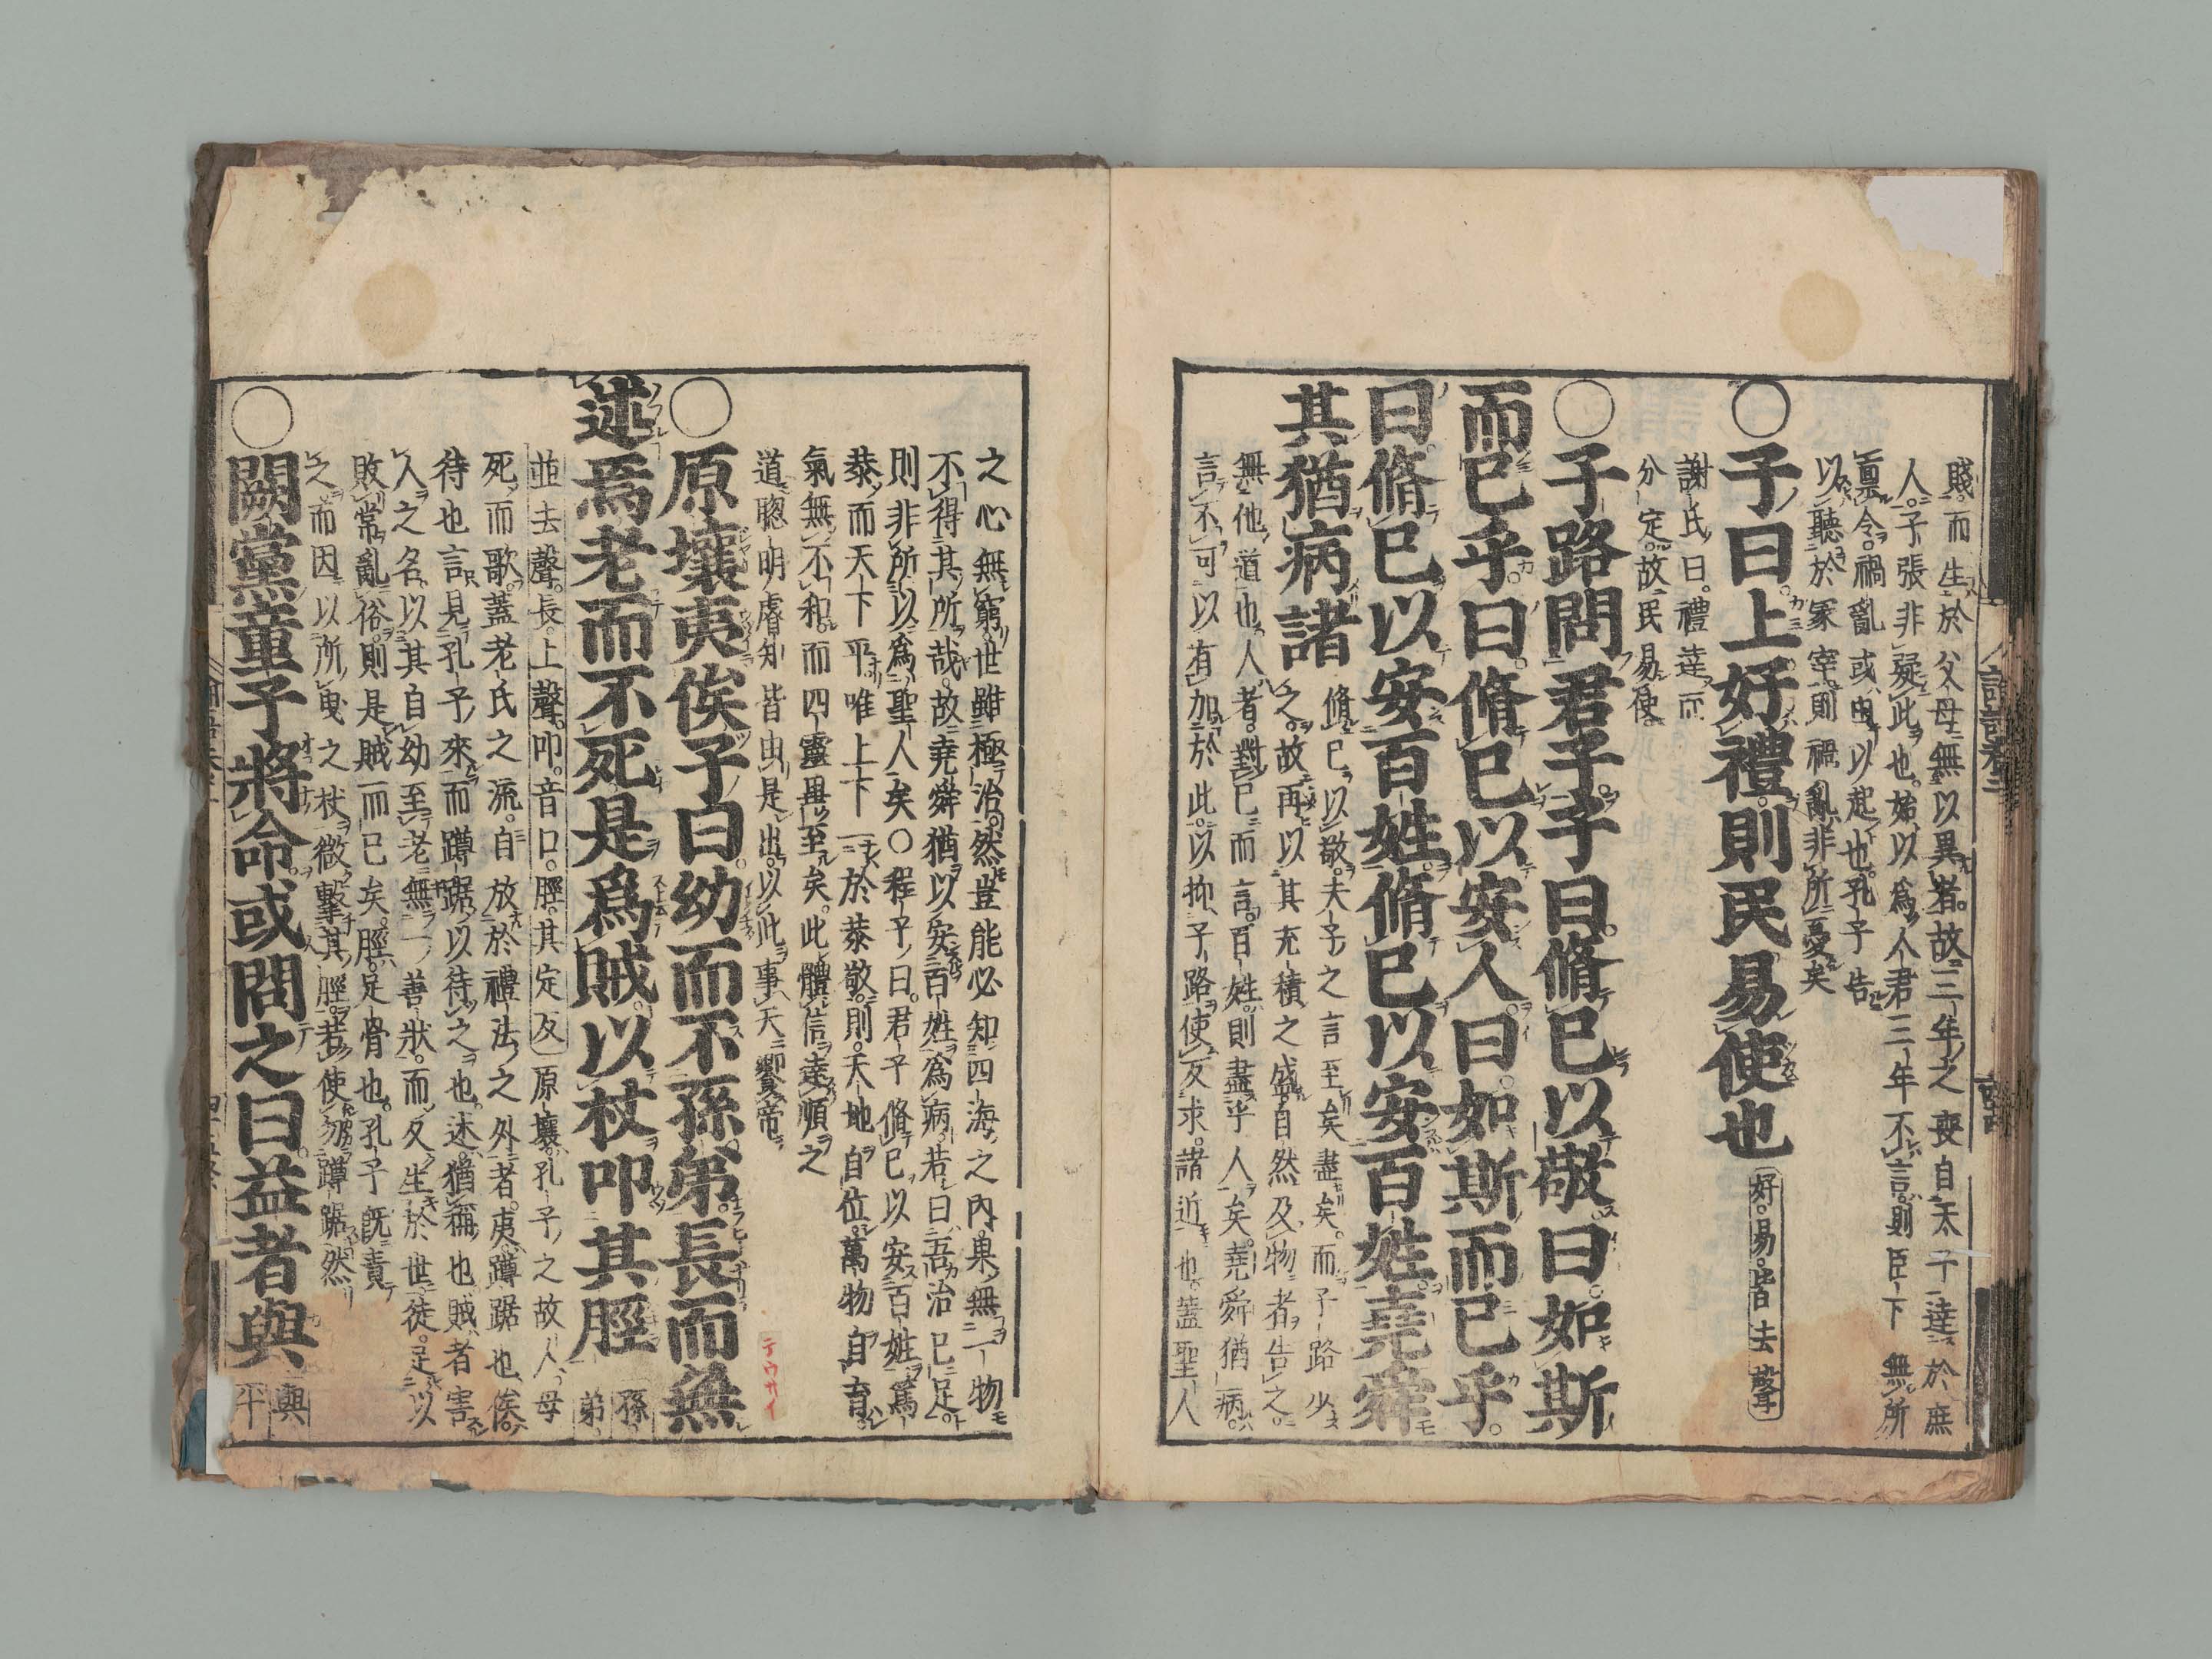 賤而生於父母無以異者故三年之喪自天子達於庶
人子張非疑此也始以爲人君三年不言則臣下無所
稟令禍亂或由以起也孔子告
以聽於冢宰則禍亂非所憂矣
○子曰上好禮則民易使也 好易皆去聲
謝氏曰禮達而
分定故民易使
○子路問君子子曰脩已以敬曰如斯
而已乎曰脩已以安人曰如斯而已乎
曰脩已以安百姓脩已以安百姓堯舜
其猶病諸
脩已以敬夫子之言至矣盡矣而子路少
之故再以其充積之盛自然及物者告之
無他道也人者對已而言百姓則盡乎人矣堯舜猶病
言不可以有加於此以抑子路使反求諸近也蓋聖人
之心無窮世雖極治然豈能必知四海之內果無一物
不得其所哉故堯舜猶以安百姓爲病若曰吾治已足
則非所以爲聖人矣○程子曰君子脩已以安百姓篤
恭而天下平唯上下一於恭敬則天地自位萬物自育
氣無不和而四靈畢至矣此體信達順之
道聰明睿知皆由是出以此事天饗帝
テウサイ
○原壤夷俟子曰幼而不孫弟長而無
述焉老而不死是爲賊以杖叩其脛
孫
弟
並去聲長上聲叩音口脛其定反 原壤孔子之故人母
死而歌蓋老氏之流自放於禮法之外者夷蹲踞也俟
待也言見孔子來而蹲踞以待之也述猶稱也賊者害
人之名以其自幼至老無一善狀而久生於世徒足以
敗常亂俗則是賊而已矣脛足骨也孔子既責
之而因以所曳之杖微擊其脛若使勿蹲踞然
○闕黨童子將命或問之曰益者與
與
平